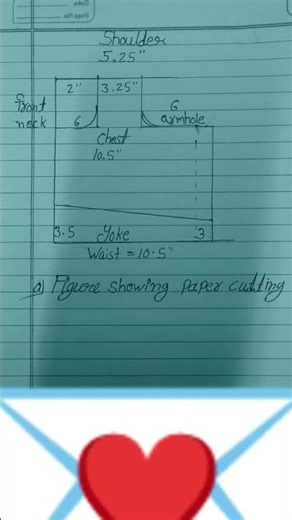 Date
Page No.
Shoulder
5.25"
2" 3.25"
front 6
neck 6 armhole
Chest
10.5"
3.5 Yoke 3
Waist = 10.5"
a) Figure showing paper cutting